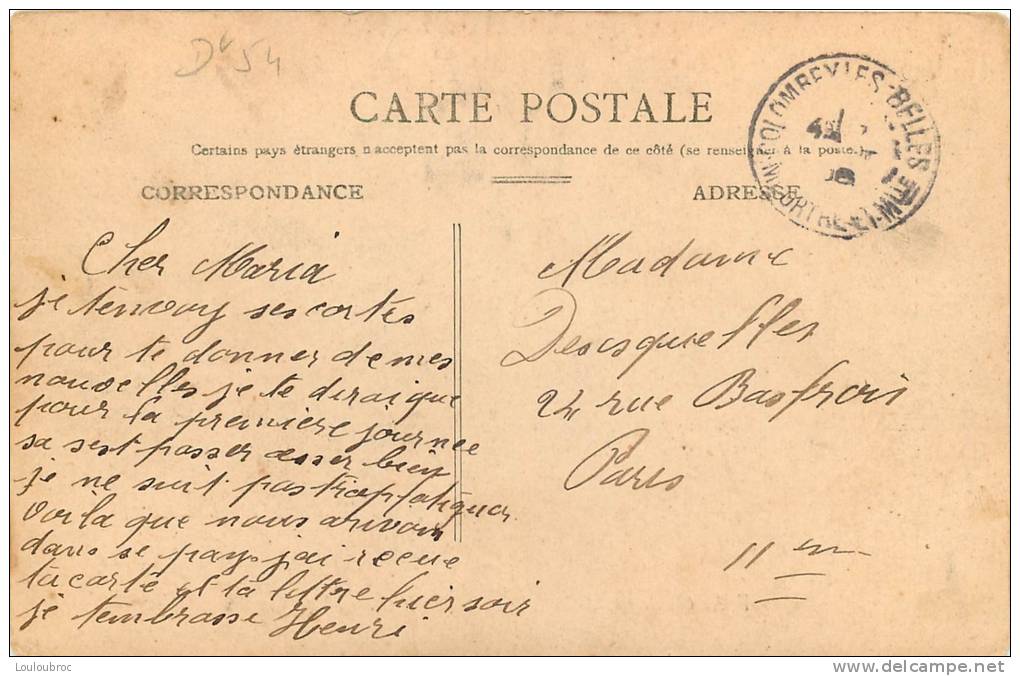 Dt 54
CARTE POSTALE
Certains pays étrangers n'acceptent pas la correspondance de ce côté (se renseigner à la poste.)
CORRESPONDANCE
ADRESSE
COLOMBEY-LES-BELLES
MEURTHE-ET-M
Cher Maria
je tenvoy ses cartes
pour te donner de mes
nouvelles je te dirai que
pour la première journée
sa sest passer asser bien
je ne suit pas trop fatiguer
voila que nous arivon
dans se pays j'ai recue
ta carte et ta lettre hier soir
je tembrasse Henri
Madame
Descsquelles
24 rue Basfrois
Paris
11 em
Louloubroc
www.delcampe.net